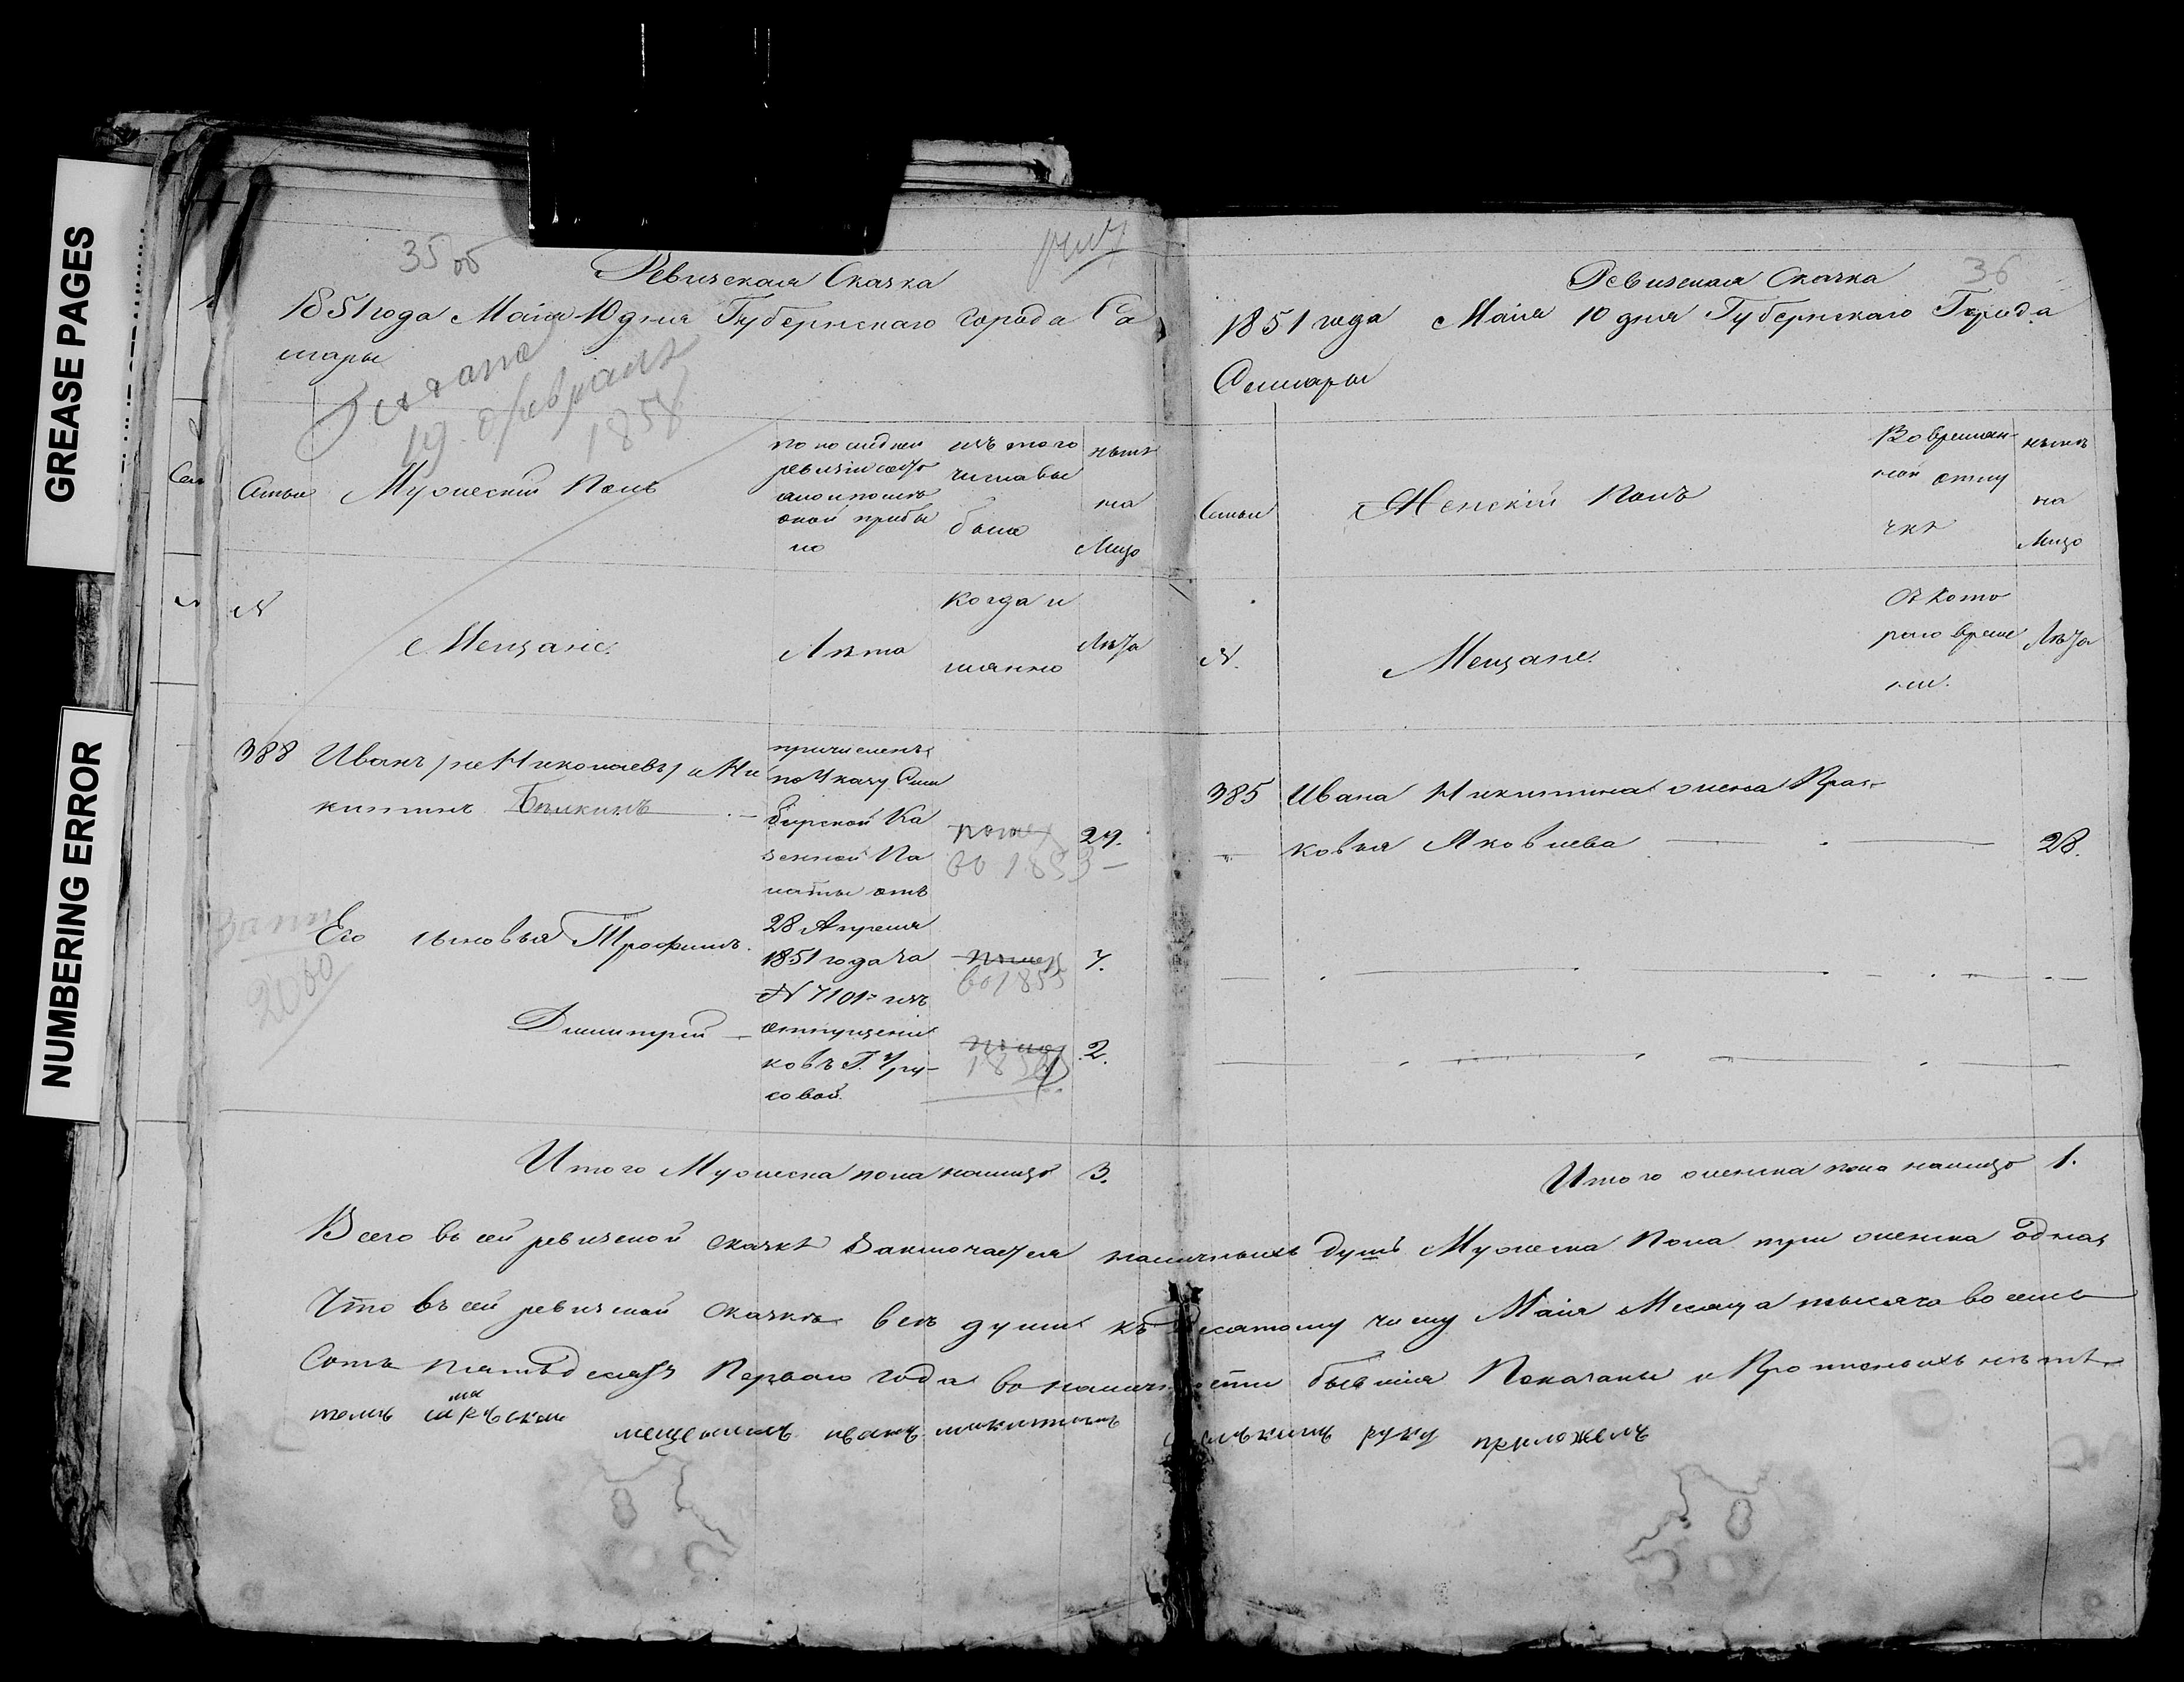 GREASE PAGES
NUMBERING ERROR
35 об
Ревизская Сказка
1851 года Маія 10 дня Губернскаго города Са
мары
19 февраля
1858
Семьи
Мужескій Полъ
по последней
ревизіи состо
яло и послѣ
оной прибы
ло
изъ того
числа вы
было
нынѣ
на
Лицо
N
Мещане.
Лѣта
Когда и
имянно
Лѣта
388 Иванъ /не Николаевъ/ а Ни
китинъ Бѣлкинъ
причисленъ
по Указу Сим
бирской Ка
зенной Па
латы отъ
28 Апреля
1851 года за
N 7101 изъ
отпущенни
ковъ Г.
совой.
помер
во 1853
29.
Его сыновья Трофимъ.
помер
во 1855
7.
Димитрій
помер
2.
2060
Итого Мужеска пола налицо 3.
36
Ревизская Сказка
1851 года Маія 10 дня Губернскаго Города
Самары
Семьи
Женскій Полъ
Во времян
ной отлу
чкѣ
нынѣ
на
Лицо
N.
Мещане.
Съ кото
раго време
ни.
Лѣта
385 Ивана Никитина жена Прас
ковья Яковлева 28.
Итого женска пола налицо 1.
Всего въ сей ревизской сказкѣ Заключается наличныхъ душъ Мужеска Пола три женска одная
Что въ сей ревизской сказкѣ всѣ души къ десятому числу Маія Месяца тысяча восемь
Сотъ пятьдесятъ Перваго года въ наличности бывшія Показаны и Прописныхъ нѣтъ
мещенинъ иванъ никитинъ белкинъ руку приложелъ